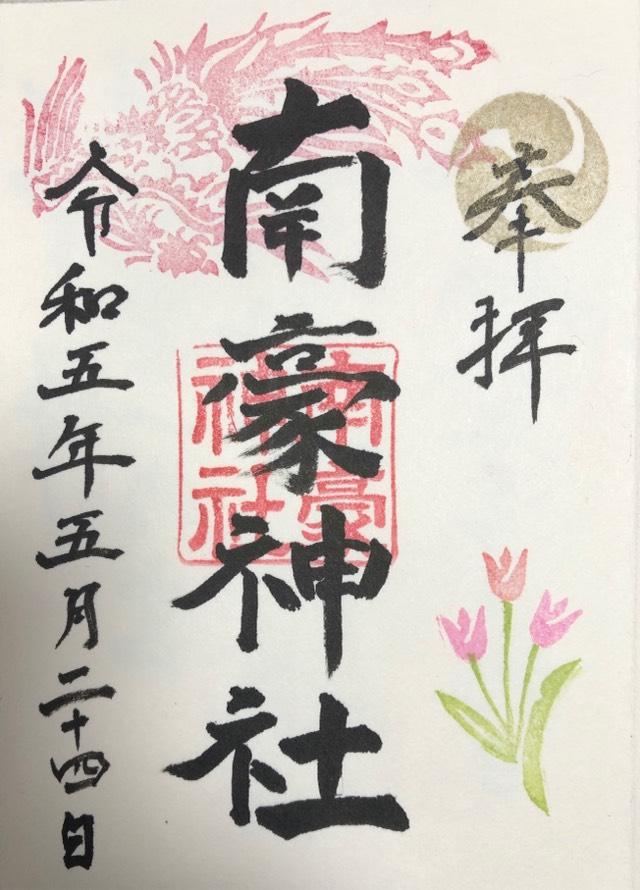 奉拝
南豪神社
南豪神社
令和五年五月二十四日